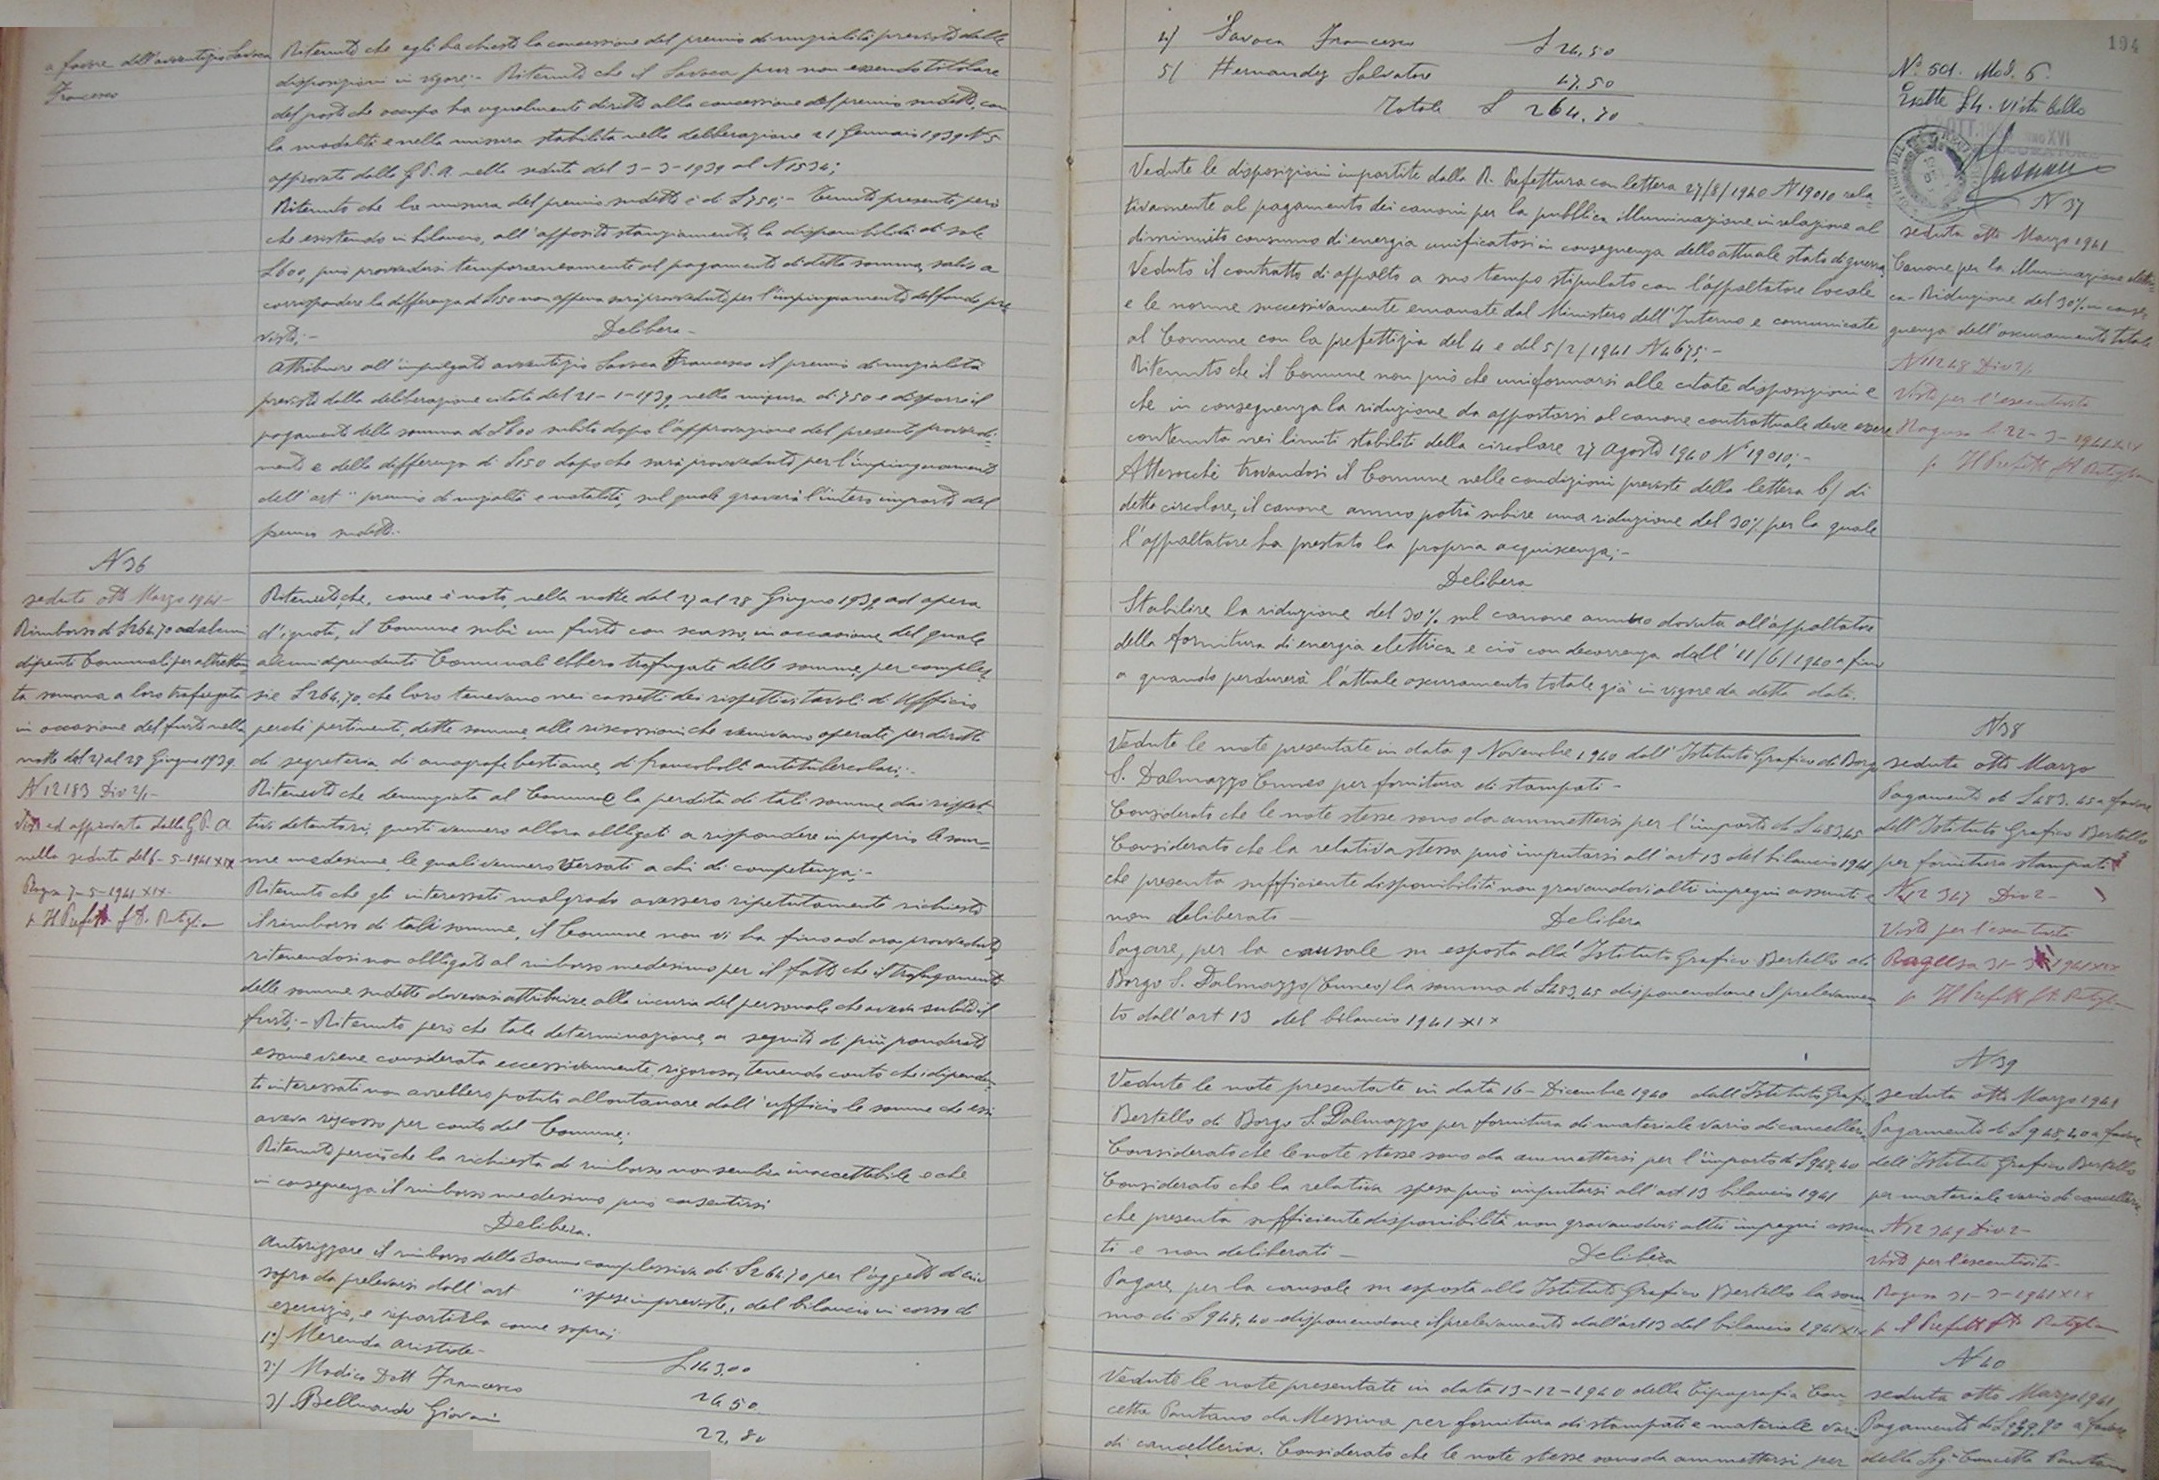 a favore dell'avventizio Savoca
Francesco
Ritenuto che egli ha chiesto la concessione del premio di nuzialità previsto dalle
disposizioni in vigore;- Ritenuto che il Savoca pur non essendo titolare
del posto che occupa ha ugualmente diritto alla concessione del premio sudetto, con
la modalità e nella misura stabilita nella deliberazione 21 Gennaio 1939 N 5
approvata dalla G.P.A. nella seduta del 3-3-1939 al N 1534;
Ritenuto che la misura del premio sudetto è di £ 750;- Tenuto presente però
che esistendo in bilancio, all'apposito stanziamento, la disponibilità di sole
£ 600, può provvedersi temporaneamente al pagamento di detta somma, salvo a
corrispondere la differenza di £ 150 non appena sarà provveduto per l'impinguamento del fondo pre-
visto;-
Delibera-
Attribuire all'impiegato avventizio Savoca Francesco il premio di nuzialità
previsto dalla deliberazione citata del 21-1-1939, nella misura di 750 e disporre il
pagamento della somma di £ 600 subito dopo l'approvazione del presente provvedi-
mento e della differenza di £ 150 dopo che sarà provveduto per l'impinguamento
dell'art " premio di nuzialità e natalità, sul quale graverà l'intero importo del
premio sudetto.
N 36
seduta otto Marzo 1941-
Rimborso di £ 264,70 ad alcuni
dipenti Comunali per altretta-
ta somma a loro trafugata
in occasione del furto nella
notte del 27 al 28 Giugno 1939.
N 12183 Div 2/1-
Visto ed approvato dalla G.P.A.
nella seduta del 6-5-1941 XIX
Ragusa 7-5-1941 XIX-
p. Il Prefetto
Ritenuto che, come è noto, nella notte dal 27 al 28 Giugno 1939, ad opera
d'ignoti, il Comune subì un furto con scasso, in occasione del quale
alcuni dipendenti Comunali ebbero trafugate delle somme, per comples-
sie £ 264,70, che loro tenevano nei cassetti dei rispettivi tavoli di Ufficio
perchè pertinenti, dette somme alle riscossioni che venivano operate per diritti
di segreteria, di anagrafe bestiame, di francobolli antitubercolari;-
Ritenuto che denunziata al Comune la perdita di tali somme dai rispet-
tivi detentori, questi vennero allora obbligati a rispondere in proprio le som-
me medesime, le quali vennero versati a chi di competenza;-
Ritenuto che gli interessati malgrado avessero ripetutamente richiesto
il rimborso di tali somme, il Comune non vi ha fino ad ora provveduto,
ritenendosi non obbligato al rimborso medesimo per il fatto che il trafugamento
delle somme sudette dovevasi attribuire alla incuria del personale che aveva subito il
furto;- Ritenuto però che tale determinazione, a seguito di più ponderato
esame viene considerata eccessivamente rigorosa, tenendo conto che i dipenden-
ti interessati non avrebbero potuto allontanare dall'ufficio le somme che essi
aveva riscosso per conto del Comune;
Ritenuto perciò che la richiesta di rimborso non sembra inaccettabile e che
in conseguenza il rimborso medesimo può consentirsi
Delibera.
Autorizzare il rimborso della somma complessiva di £ 264,70 per l'oggetto di cui
sopra da prelevarsi dall'art "spese impreviste,, del bilancio in corso di
esercizio, e ripartirla come sopra;
1°) Merenda Aristide- £ 143,00
2°) Modica Dott Francesco 26,50
3°) Bellnardo Giovani 22,80
194
4) Savoca Francesco £ 24,50
5) Hernandez Salvatore 47,50
Totale £ 264,70
N° 501. Mod. 6.
Esatte £ 4. visto bollo
N 37
seduta otto Marzo 1941
Canone per la illuminazione elettri-
ca-Riduzione del 30% in conse-
guenza dell'oscuramento totale
N 11248 Div 2/1
Visto per l'esecutività
Ragusa lì 22-3-1941 XIX
p. Il Prefetto
Vedute le disposizioni impartite dalla R. Prefettura con lettera 27/8/1940 N 19010 rela-
tivamente al pagamento dei canoni per la pubblica illuminazione in relazione al
diminuito consumo di energia unificatosi in conseguenza dello attuale stato di guerra,
Veduto il contratto di appalto a suo tempo stipulato con l'appaltatore locale
e le norme successivamente emanate dal Ministero dell'Interno e comunicate
al Comune con la prefettizia del 4 e del 5/2/1941 N 4675;-
Ritenuto che il Comune non può che uniformarsi alle citate disposizioni e
che in conseguenza la riduzione da apportarsi al canone contrattuale deve essere
contenuta nei limiti stabiliti della circolare 27 agosto 1940 N° 19010;-
Attesocchè trovandosi il Comune nelle condizioni previste della lettera b) di
detta circolare, il canone annuo potrà subire una riduzione del 30% per la quale
l'appaltatore ha prestato la propria acquiscenza;-
Delibera
Stabilire la riduzione del 30% sul canone annuo dovuta all'appaltatore
della fornitura di energia elettrica e ciò con decorrenza dall'11/6/1940 e fino
a quando perdurerà l'attuale oscuramento totale già in vigore da detta data.
N 38
seduta otto Marzo
Pagamento di £ 483,45 a favore
dell'Istituto Grafico Bertello
per fornitura stampati
N 12367 Div 2-
Visto per l'esecutività
Ragusa 31-3-1941 XIX
p. Il Prefetto
Vedute le note presentate in data 9 Novembre 1940 dall'Istituto Grafico di Borgo
S. Dalmazzo Cuneo per fornitura di stampati-
Considerato che le note stesse sono da ammettersi per l'importo di £ 483,45
Considerato che la relativa stessa può imputarsi all'art 13 del bilancio 1941
che presenta sufficiente disponibilità non gravandovi altri impegni assunti e
non deliberati- Delibera
Pagare, per la causale su esposta alla Istituto Grafico Bertello di
Borgo S. Dalmazzo (Cuneo) la somma di £ 483,45 disponendone il prelevamen-
to dall'art 13 del bilancio 1941 XIX
N 39
seduta otto Marzo 1941
Pagamento di £ 948,40 a favore
dell'Istituto Grafico Bertello
per materiale vario di cancelleria
N 12369 Div 2-
Visto per l'esecutività-
Ragusa 31-3-1941 XIX
p. Il Prefetto
Vedute le note presentate in data 16-Dicembre 1940 dall'Istituto Grafico
Bertello di Borgo S. Dalmazzo per fornitura di materiale vario di cancelleria
Considerato che le note stesse sono da ammettersi per l'importo di £ 948,40
Considerato che la relativa spesa può imputarsi all'art 13 bilancio 1941
che presenta sufficiente disponibilità non gravandovi altri impegni assun-
ti e non deliberati- Delibera
Pagare, per la causale su esposta allo Istituto Grafico Bertello la som-
ma di £ 948,40 disponendone il prelevamento dall'art 13 del bilancio 1941 XIX
N 40
seduta otto Marzo 1941
Pagamento di £ 939,90 a favore
della Sig. Concetta Pantano
Vedute le note presentate in data 13-12-1940 della Tipografia Con-
cetta Pantano da Messina per fornitura di stampati e materiale vario
di cancelleria. Considerato che le note stesse sono da ammettersi per